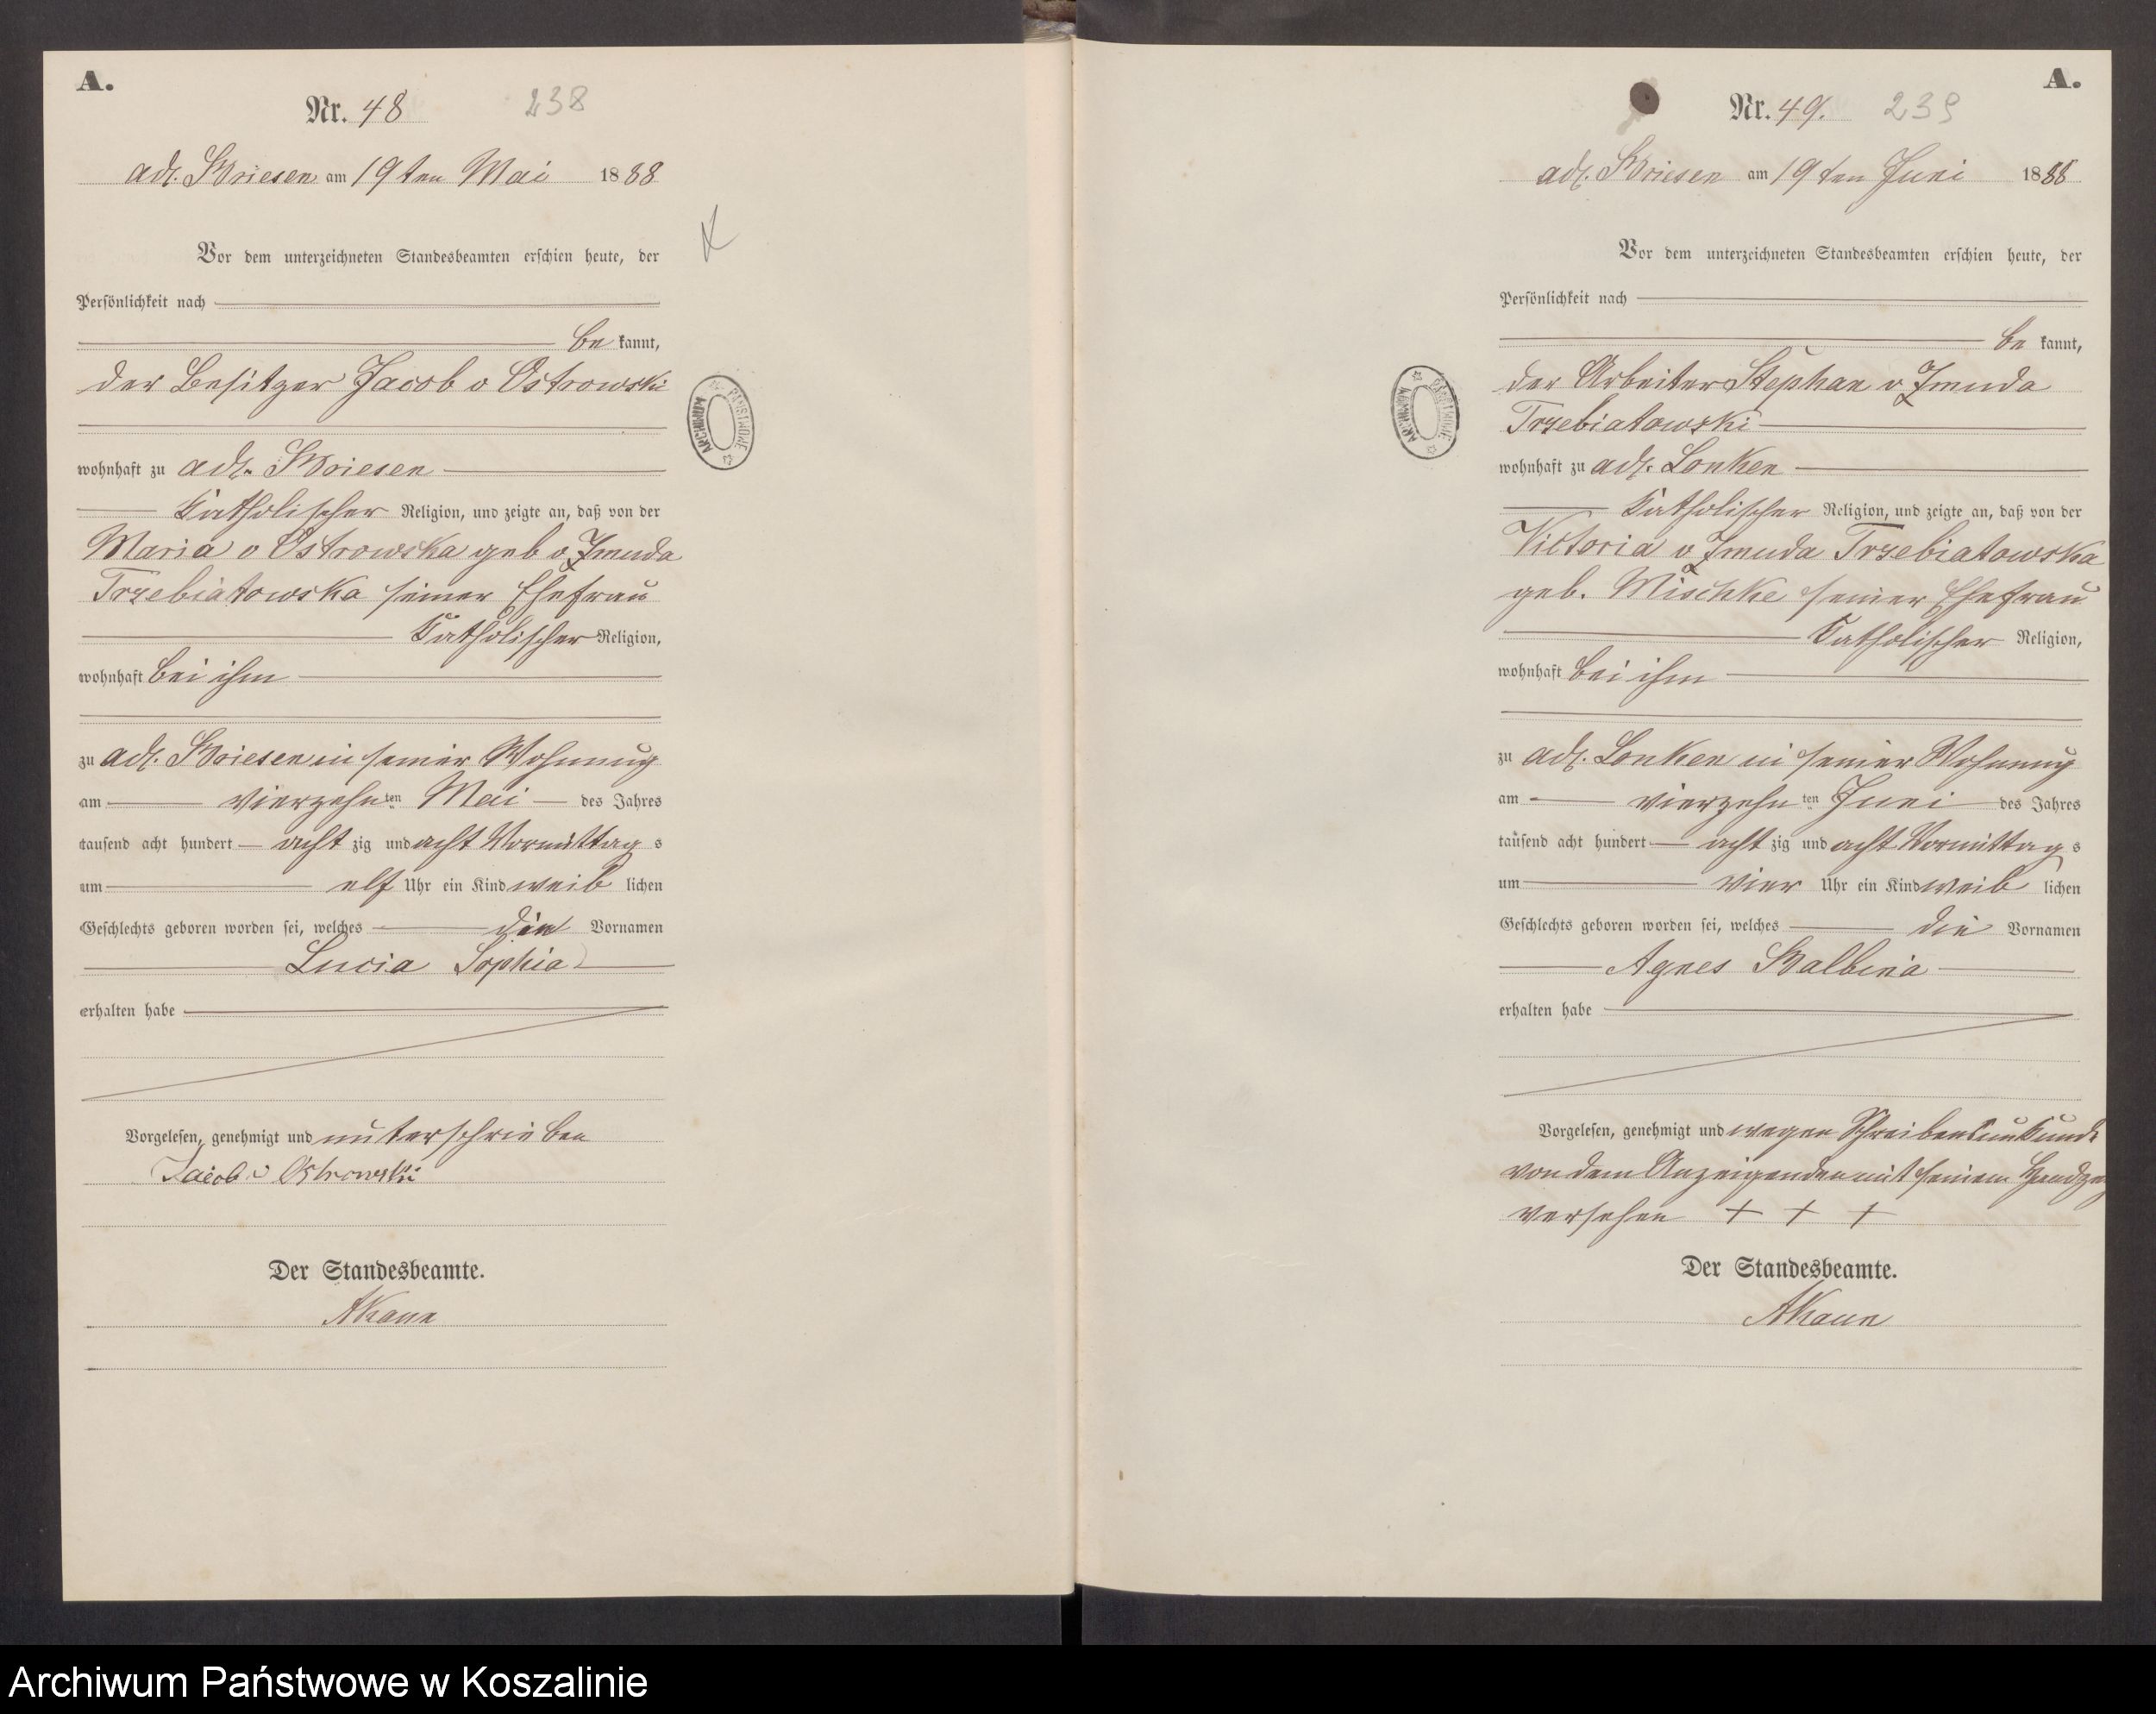 A.
Nr. 48 238
adl. Briesen am 19ten Mai 1888
Vor dem unterzeichneten Standesbeamten erschien heute, der
Persönlichkeit nach
be kannt,
der Besitzer Jacob v Ostrowski
wohnhaft zu adl. Briesen
Katholischer Religion, und zeigte an, daß von der
Maria v Ostrowska geb v Zmuda
Trzebiatowska seiner Ehefrau
Katholischer Religion,
wohnhaft bei ihm
zu adl. Briesen in seiner Wohnung
am vierzehn ten Mai des Jahres
tausend acht hundert acht zig und acht Vormittag s
um elf Uhr ein Kind weib lichen
Geschlechts geboren worden sei, welches die Vornamen
Lucia Sophia
erhalten habe
Vorgelesen, genehmigt und unterschrieben
Jacob v Ostrowski
Der Standesbeamte.
ARCHIWUM PAŃSTWOWE
A.
Nr. 49. 239
adl. Briesen am 19ten Juni 1888
Vor dem unterzeichneten Standesbeamten erschien heute, der
Persönlichkeit nach
be kannt,
der Arbeiter Stephan v Zmuda
Trzebiatowski
wohnhaft zu adl. Lonken
Katholischer Religion, und zeigte an, daß von der
Victoria v Zmuda Trzebiatowska
geb. Mischke seiner Ehefrau
Katholischer Religion,
wohnhaft bei ihm
zu adl. Lonken in seiner Wohnung
am vierzehn ten Juni des Jahres
tausend acht hundert acht zig und acht Vormittag s
um vier Uhr ein Kind weib lichen
Geschlechts geboren worden sei, welches die Vornamen
Agnes Balbina
erhalten habe
Vorgelesen, genehmigt und wegen Schreibensunkunde
von dem Anzeigenden mit seinem
versehen + + +
Der Standesbeamte.
ARCHIWUM PAŃSTWOWE
Archiwum Państwowe w Koszalinie